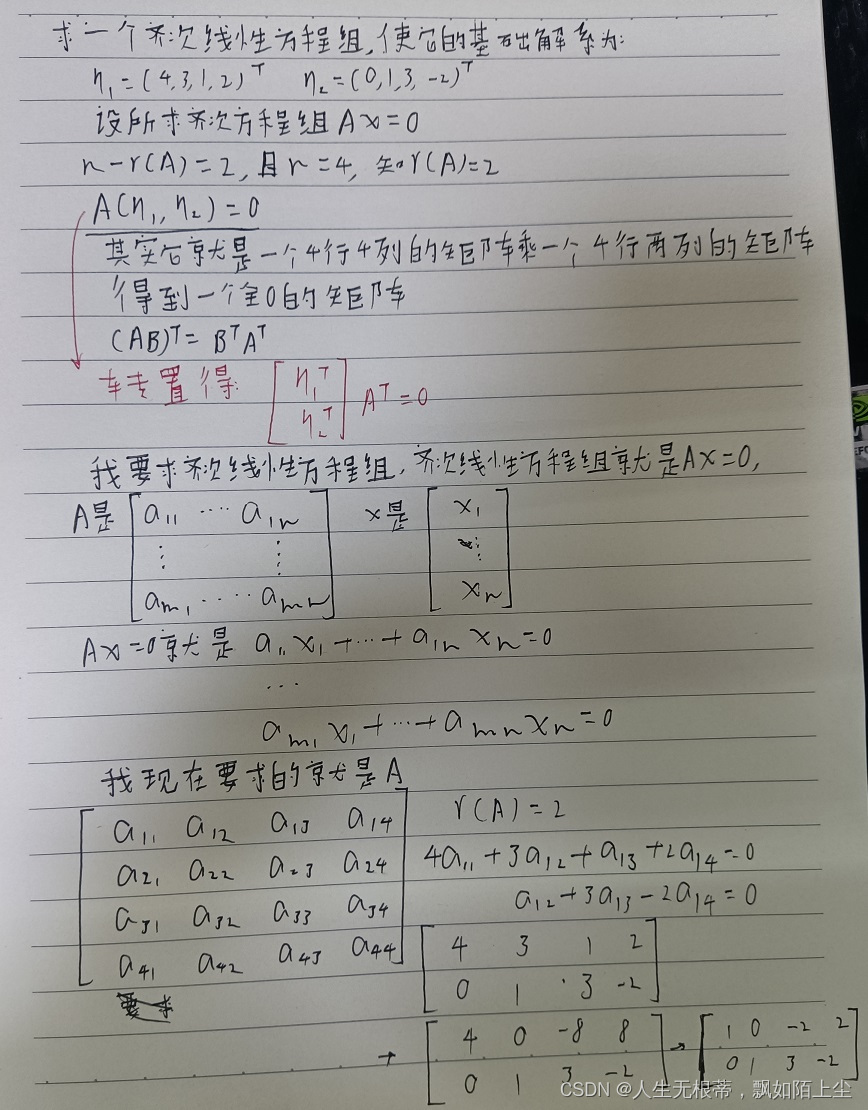 求一个齐次线性方程组,使它的基础解系为:
η₁=(4,3,1,2)ᵀ η₂=(0,1,3,-2)ᵀ
设所求齐次方程组Ax=0
n-r(A)=2,且n=4,知r(A)=2
A(η₁,η₂)=0
其实它就是一个4行4列的矩阵乘一个4行两列的矩阵
得到一个全0的矩阵
(AB)ᵀ=BᵀAᵀ
转置得: [η₁ᵀ
η₂ᵀ] Aᵀ=0
我要求齐次线性方程组,齐次线性方程组就是Ax=0,
A是 [a₁₁ ···· a₁ₙ x是 [x₁
⋮ ⋮ ⋮
aₘ₁ ···· aₘₙ] xₙ]
Ax=0就是 a₁₁x₁+···+a₁ₙxₙ=0
···
aₘ₁x₁+···+aₘₙxₙ=0
我现在要求的就是A
[a₁₁ a₁₂ a₁₃ a₁₄ r(A)=2
a₂₁ a₂₂ a₂₃ a₂₄ 4a₁₁+3a₁₂+a₁₃+2a₁₄=0
a₃₁ a₃₂ a₃₃ a₃₄ a₁₂+3a₁₃-2a₁₄=0
a₄₁ a₄₂ a₄₃ a₄₄] [4 3 1 2
0 1 3 -2]
→ [4 0 -8 8 → [1 0 -2 2
0 1 3 -2] 0 1 3 -2]
CSDN @人生无根蒂,飘如陌上尘